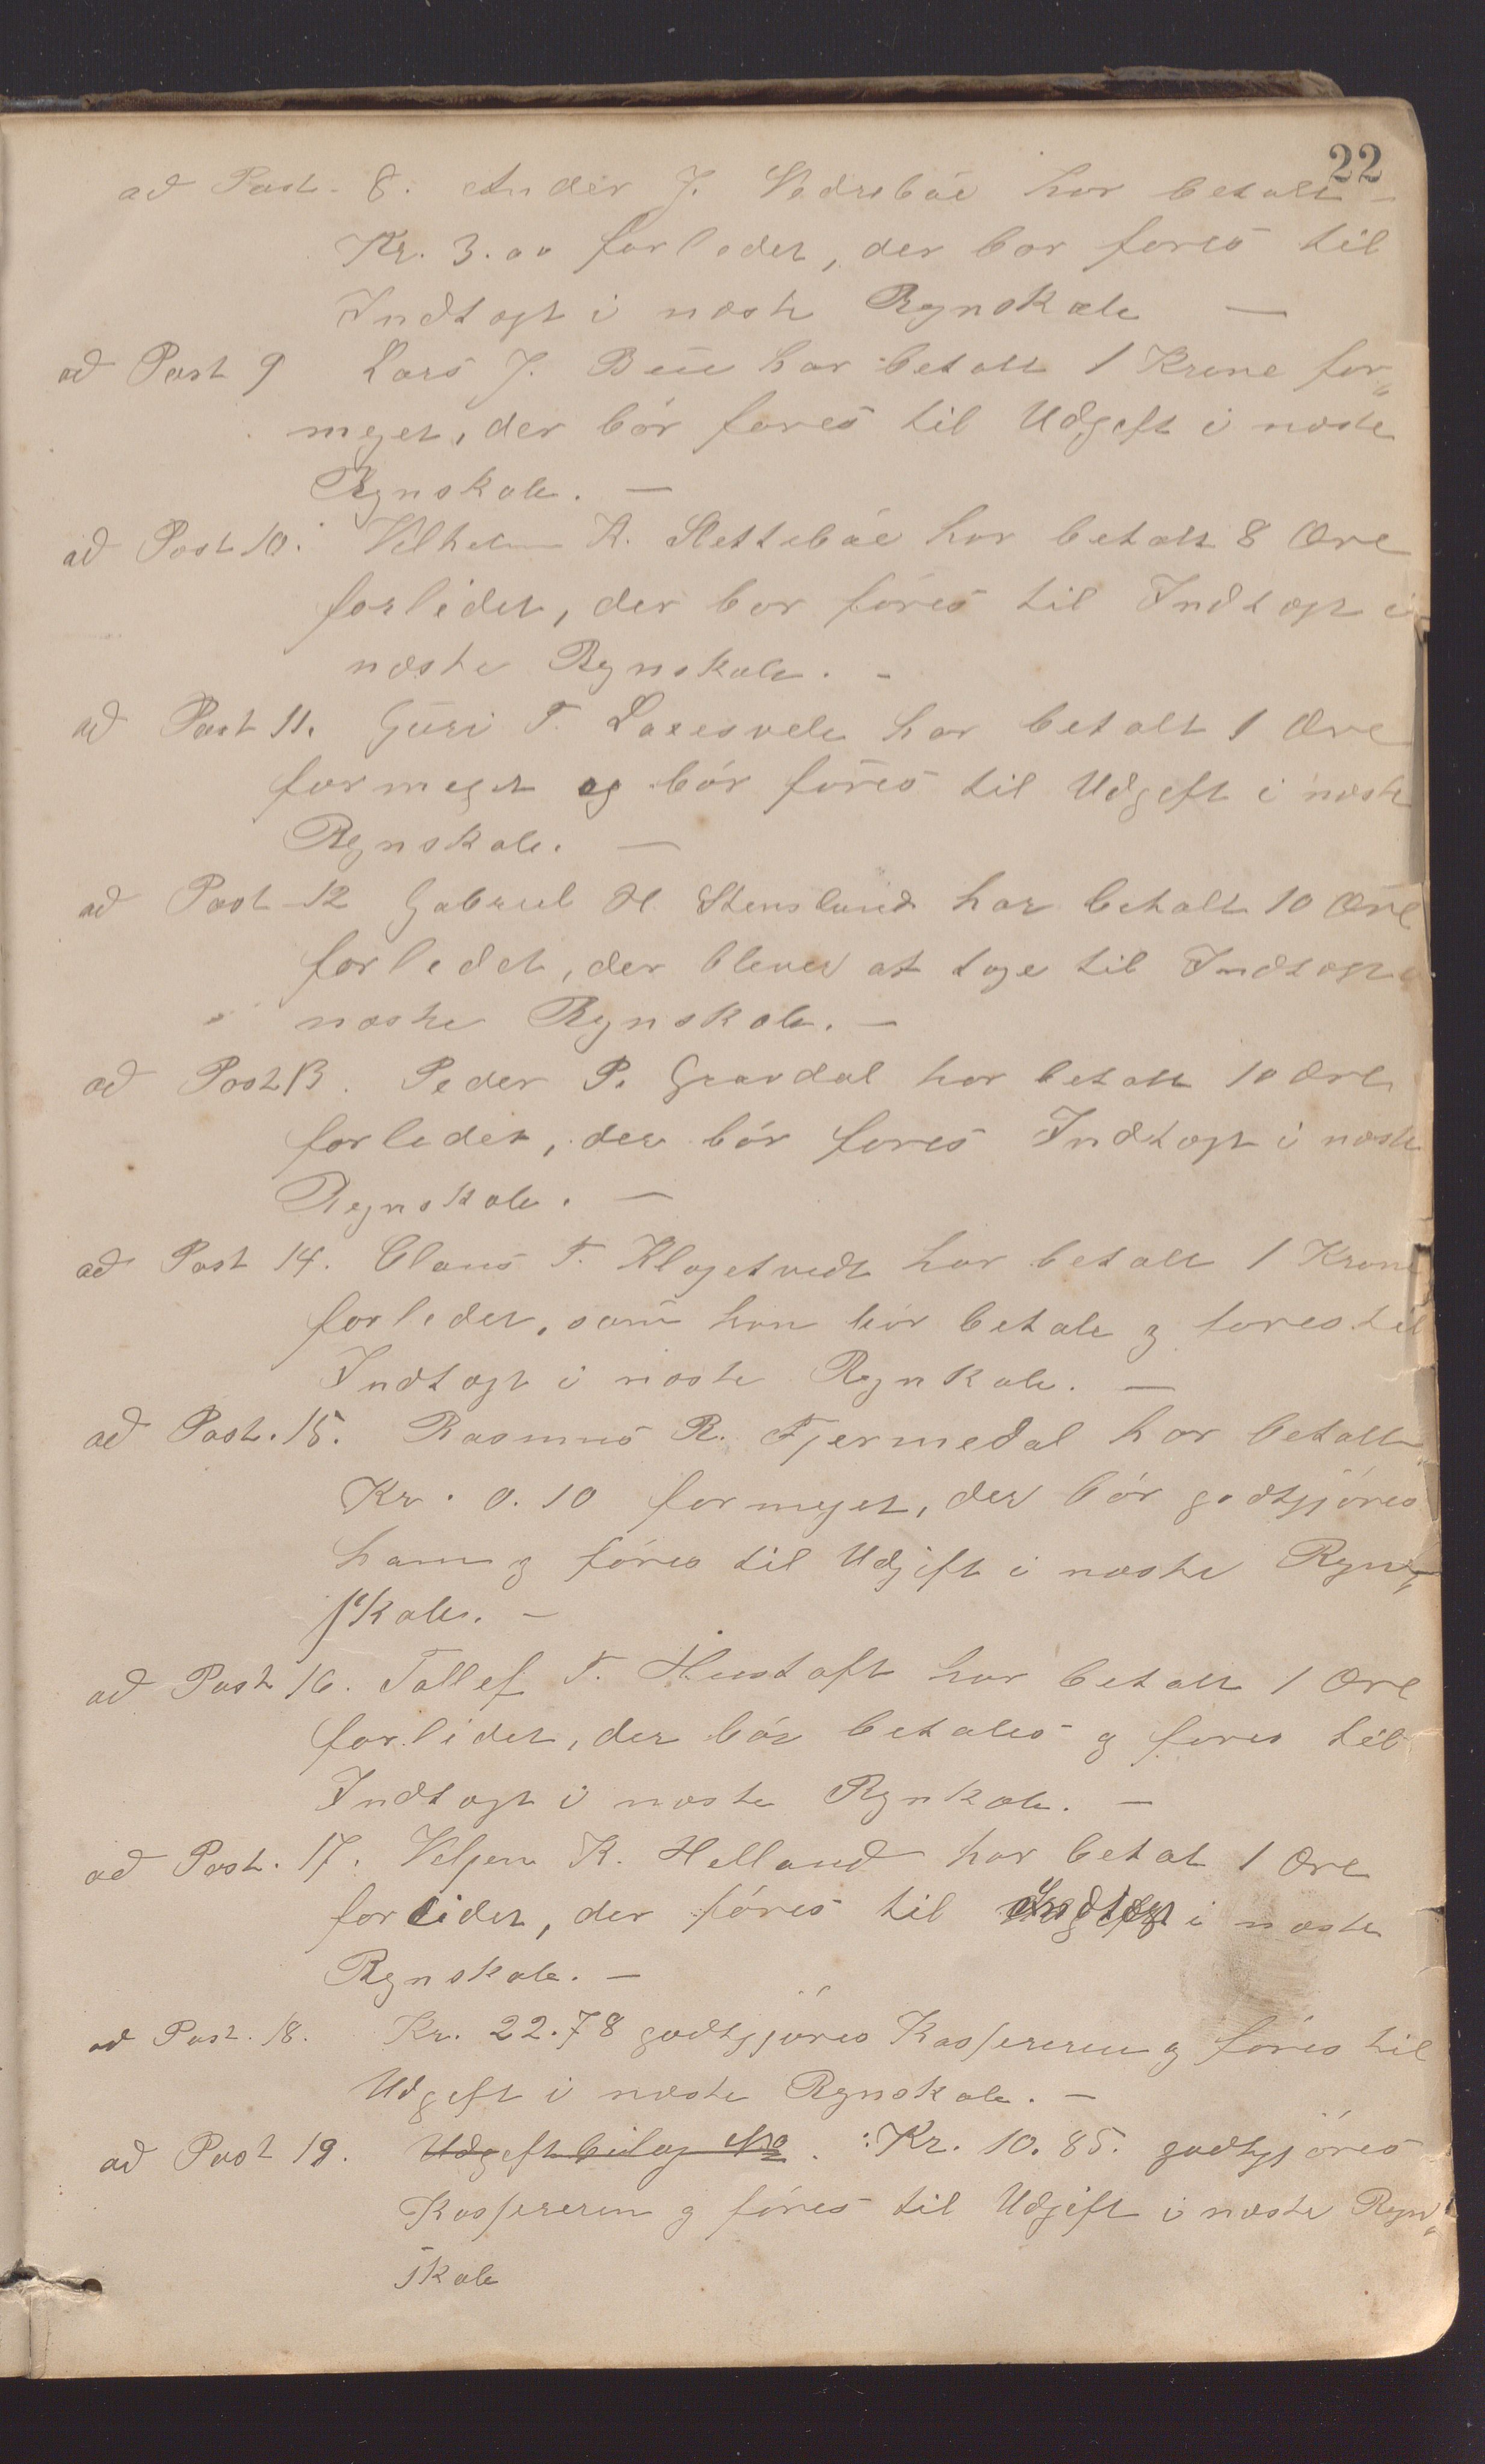 22
ad Post. 8. Ander J. Vedrebøe har betalt
Kr. 3.00 forlidet, der bør føres til
Indtægt i næste Regnskab —
ad Post 9 Lars J. Bue har betalt 1 Krone for„
meget, der bør føres til Udgift i næste
Regnskab. —
ad Post 10. Vilhelm K. Slettebøe har betalt 8 Øre
forlidet, der bør føres til Indtægt i
næste Regnskab. -
ad Post 11. Guri T. har betalt 1 Øre
formeget og bør føres til Udgift i næste
Regnskab. —
ad Post 12 Gabriel H. Stensland har betalt 10 Øre
forlidet, der bliver at tage til Indtægt i
næste Regnskab. —
ad Post 13. Peder P. Gravdal har betalt 10 Øre
forlidet, der bør føres Indtægt i næste
Regnskab. —
ad Post 14. Claus T. Klagetvedt har betalt 1 Krone
forlidet, som han bør betale og føres til
Indtægt i næste Regnkab. —
ad Post. 15. Rasmus R. Fjermedal har betalt
Kr. 0.10 formeget, der bør godtgjøres
ham og føres til Udgift i næste Regn„
skab. —
ad Post 16. Tollef T. Hustoft har betalt 1 Øre
forlidet, der bør betales og føres til
Indtægt i næste Regnkab. —
ad Post. 17. Veljem K. Helland har betalt 1 Øre
forlidet, der føres til Indtægt i næste
Regnskab. —
ad Post. 18. Kr. 22.78 godtgjøres Kassereren og føres til
Udgift i næste Regnskab. —
ad Post 19. Udgiftbilag No. : Kr. 10.85. godtgjøres
Kassereren og føres til Udgift i næste Regn„
skab